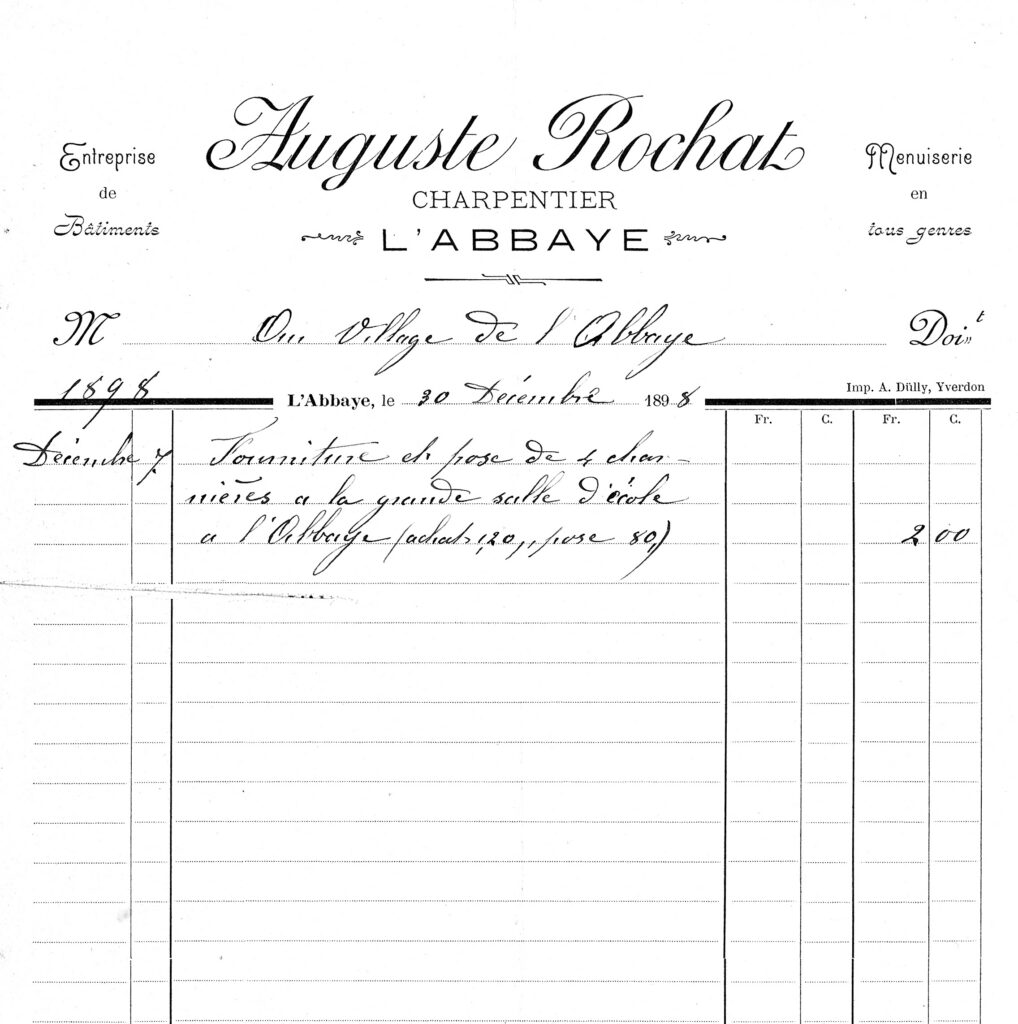 Auguste Rochat
Entreprise
de
Bâtiments
Menuiserie
en
tous genres
CHARPENTIER
L'ABBAYE
M Au Village de l'Abbaye Doit
1898
L'Abbaye, le 30 Décembre 1898
Imp. A. Dülly, Yverdon
Fr. C. Fr. C.
Décembre 7 Fourniture et pose de 4 char-
nières a la grande salle d'école
a l'Abbaye (achat 1,20,, pose 80,) 2 00